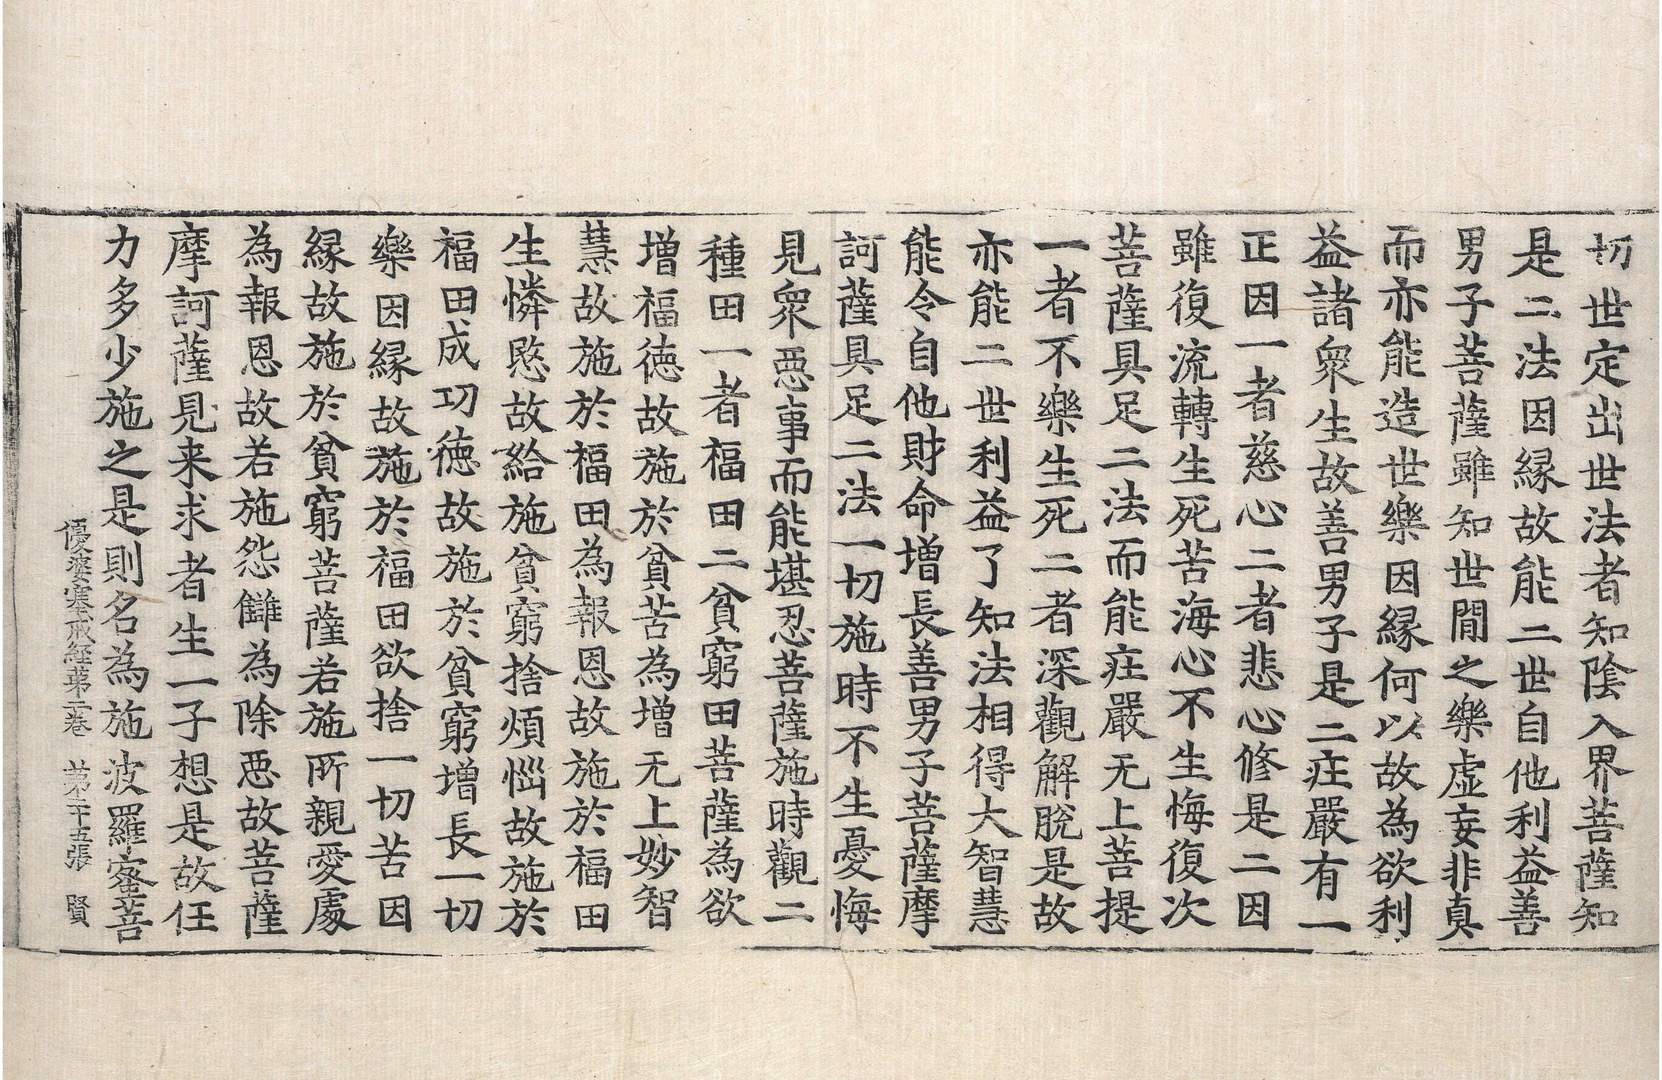 切世定出世法者知陰入界菩薩知
是二法因縁故能二世自他利益善
男子菩薩雖知世間之樂虛妄非真
而亦能造世樂因縁何以故為欲利
益諸衆生故善男子是二庄嚴有一
正因一者慈心二者悲心修是二因
雖復流轉生死苦海心不生悔復次
菩薩具足二法而能庄嚴无上菩提
一者不樂生死二者深觀解脫是故
亦能二世利益了知法相得大智慧
能令自他財命增長善男子菩薩摩
訶薩具足二法一切施時不生憂悔
見衆惡事而能堪忍菩薩施時觀二
種田一者福田二貧窮田菩薩為欲
增福徳故施於貧苦為增无上妙智
慧故施於福田為報恩故施於福田
生憐愍故給施貧窮捨煩惱故施於
福田成功徳故施於貧窮增長一切
樂因縁故施於福田欲捨一切苦因
縁故施於貧窮菩薩若施所親愛處
為報恩故若施怨讎為除惡故菩薩
摩訶薩見来求者生一子想是故任
力多少施之是則名為施波羅蜜菩
優婆塞戒経第二卷 第二十五張 賢